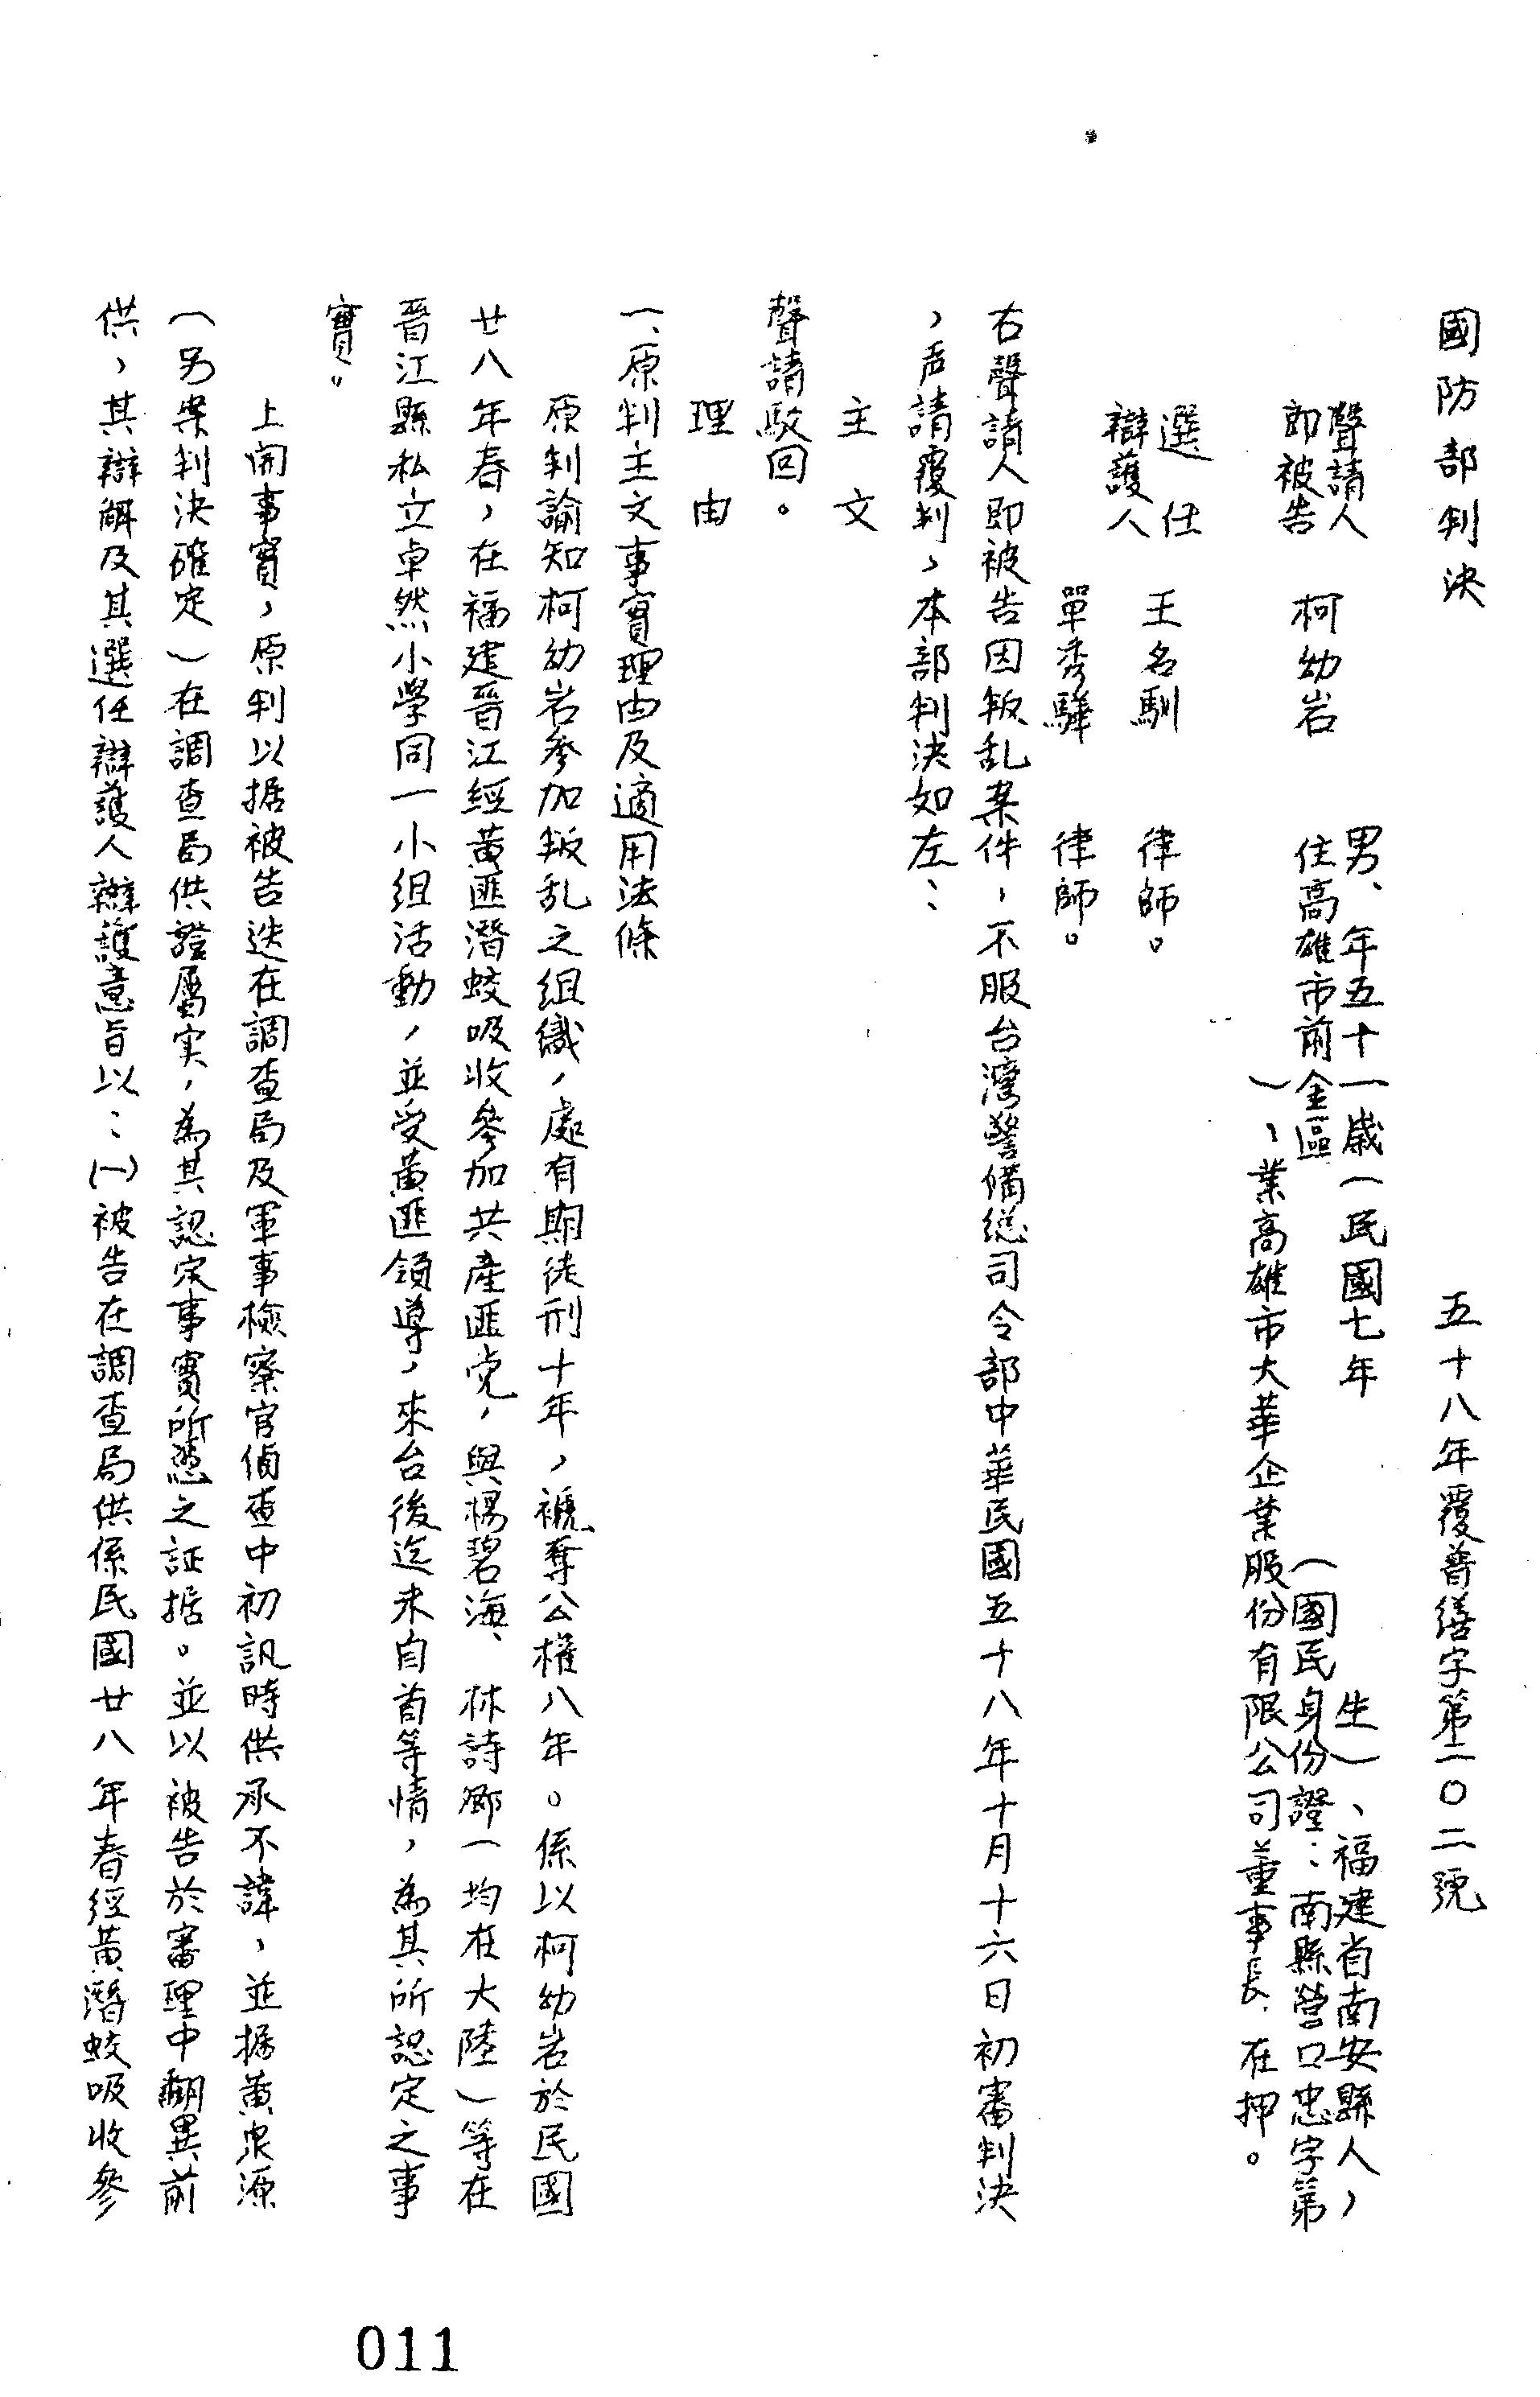 國防部判決
五十八年覆普繕字第一〇二號
聲請人
即被告
柯幼岩
男、年五十一歲(民國七年 生)、福建省南安縣人,
住高雄市前金區 (國民身份證:南縣營口忠字第
)、業高雄市大華企業股份有限公司董事長、在押。
選任
辯護人
王名馴 律師。
單秀驊 律師。
右聲請人即被告因叛乱案件,不服台灣警備總司令部中華民國五十八年十月十六日初審判決
,声請覆判,本部判決如左:
主文
聲請駁回。
理由
一、原判主文事實理由及適用法條
原判諭知柯幼岩參加叛乱之組織,處有期徒刑十年,褫奪公權八年。係以柯幼岩於民國
廿八年春,在福建晉江經黃匪潛蛟吸收參加共產匪党,與楊碧海、林詩鄉(均在大陸)等在
晉江縣私立卓然小學同一小組活動,並受黃匪領導,來台後迄未自首等情,為其所認定之事
實。
上開事實,原判以据被告迭在調查局及軍事檢察官偵查中初訊時供承不諱,並据黃衆源
(另案判決確定)在調查局供證屬实,為其認定事實所憑之証据。並以被告於審理中翻異前
供,其辯解及其選任辯護人辯護意旨以:(一)被告在調查局供係民國廿八年春經黃潛蛟吸收參
011